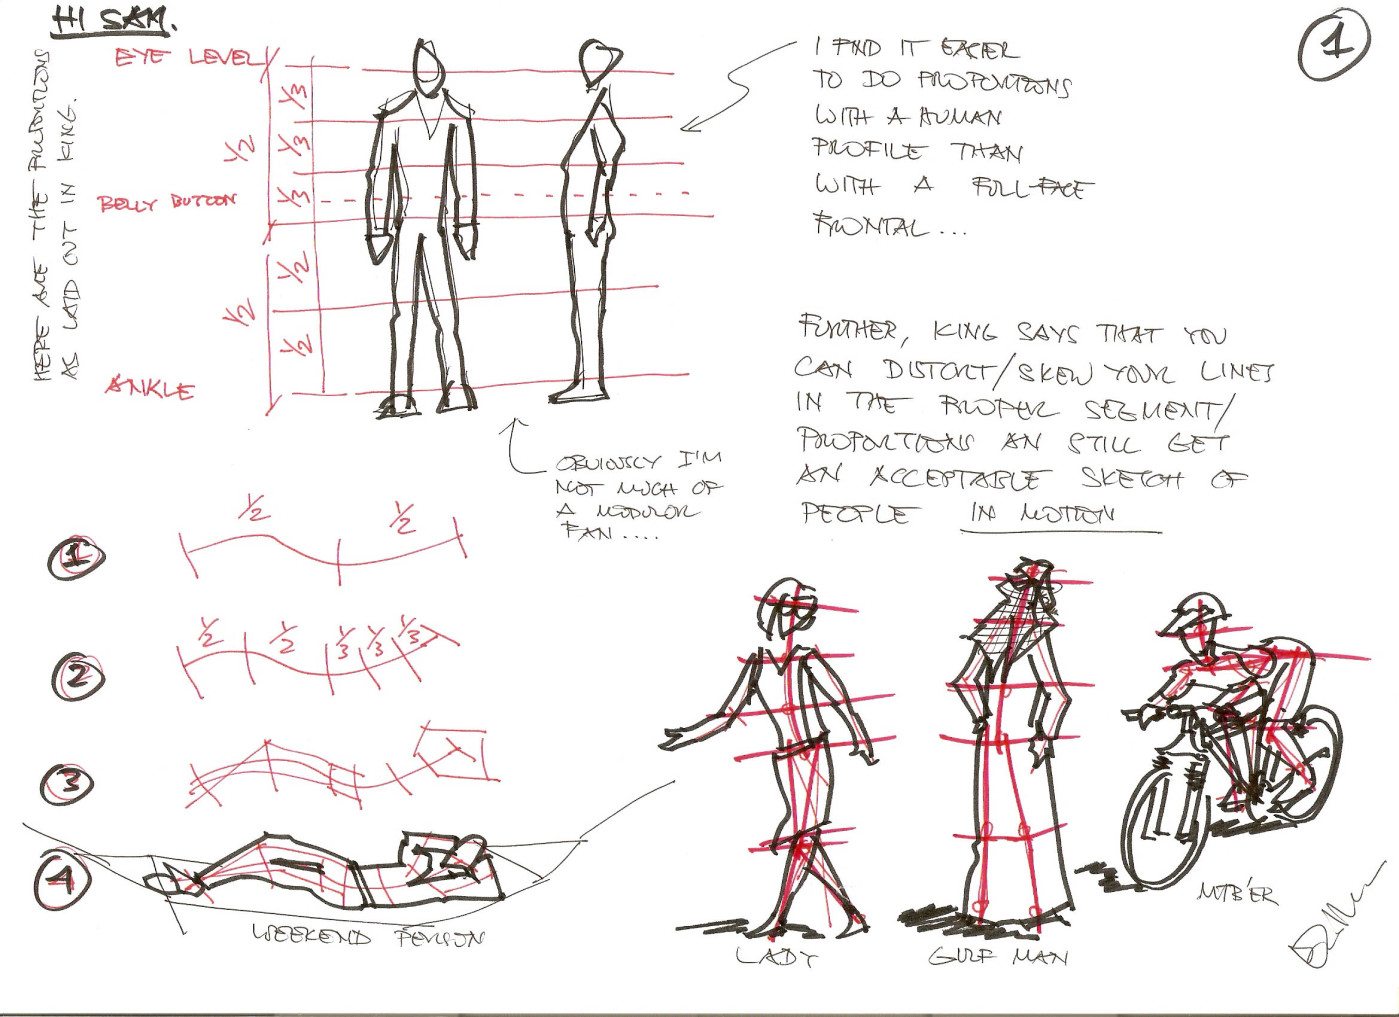 HI SAM.
1
HERE ARE THE PROPORTIONS
AS LAID OUT IN KING.
EYE LEVEL
1/3
1/3
1/2
BELLY BUTTON
1/3
1/2
1/2
1/2
ANKLE
I FIND IT EASIER
TO DO PROPORTIONS
WITH A HUMAN
PROFILE THAN
WITH A FULL-FACE
FRONTAL...
OBVIOUSLY I'M
NOT MUCH OF
A MODULOR
FAN....
FURTHER, KING SAYS THAT YOU
CAN DISTORT/SKEW YOUR LINES
IN THE PROPER SEGMENT/
PROPORTIONS AN STILL GET
AN ACCEPTABLE SKETCH OF
PEOPLE IN MOTION
1
1/2 1/2
2
1/2 1/2 1/3 1/3 1/3
3
4
WEEKEND PERSON
LADY
GULF MAN
MTB'ER